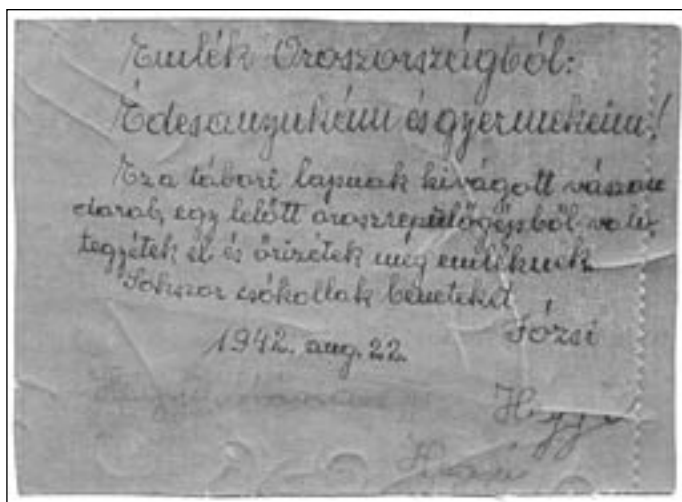 Emlék Oroszországból:
Édesanyukám és gyermekeim!
Ez a tábori lapnak kivágott vászon
darab, egy lelőtt orosz repülőgépből való,
tegyétek el és őrizétek meg emléknek.
Sokszor csókollak beneteket
Józsi
1942. aug. 22.